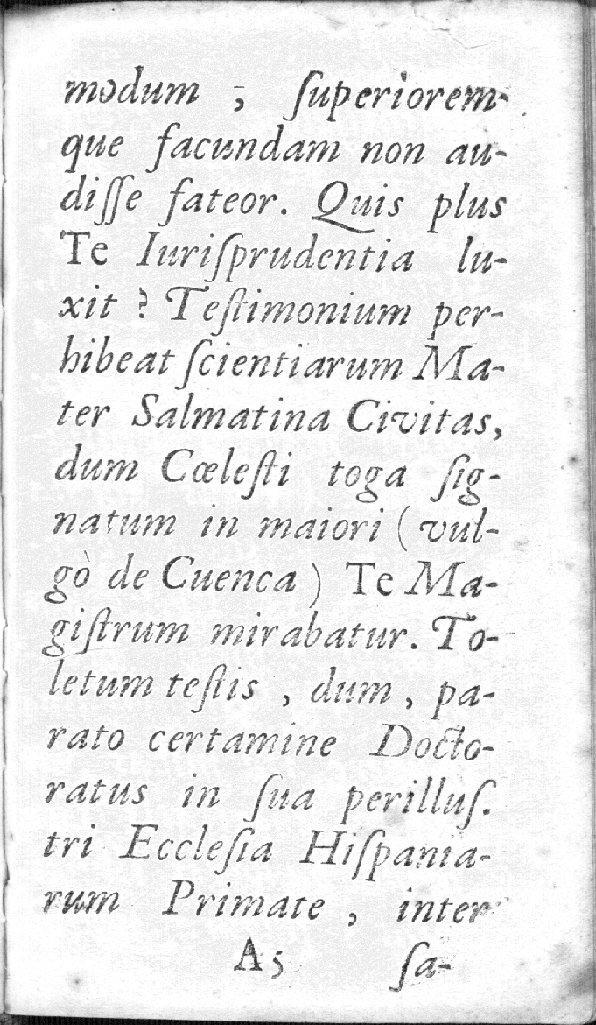 modum ; ſuperiorem-
que facundam non au-
diſſe fateor. Quis plus
Te Iuriſprudentia lu-
xit ? Teſtimonium per-
hibeat ſcientiarum Ma-
ter Salmatina Civitas,
dum Cœleſti toga ſig-
natum in maiori ( vul-
gò de Cuenca ) Te Ma-
giſtrum mirabatur. To-
letum teſtis , dum , pa-
rato certamine Docto-
ratus in ſua perilluſ.
tri Eccleſia Hiſpania-
rum Primate , inter
A5 ſa-